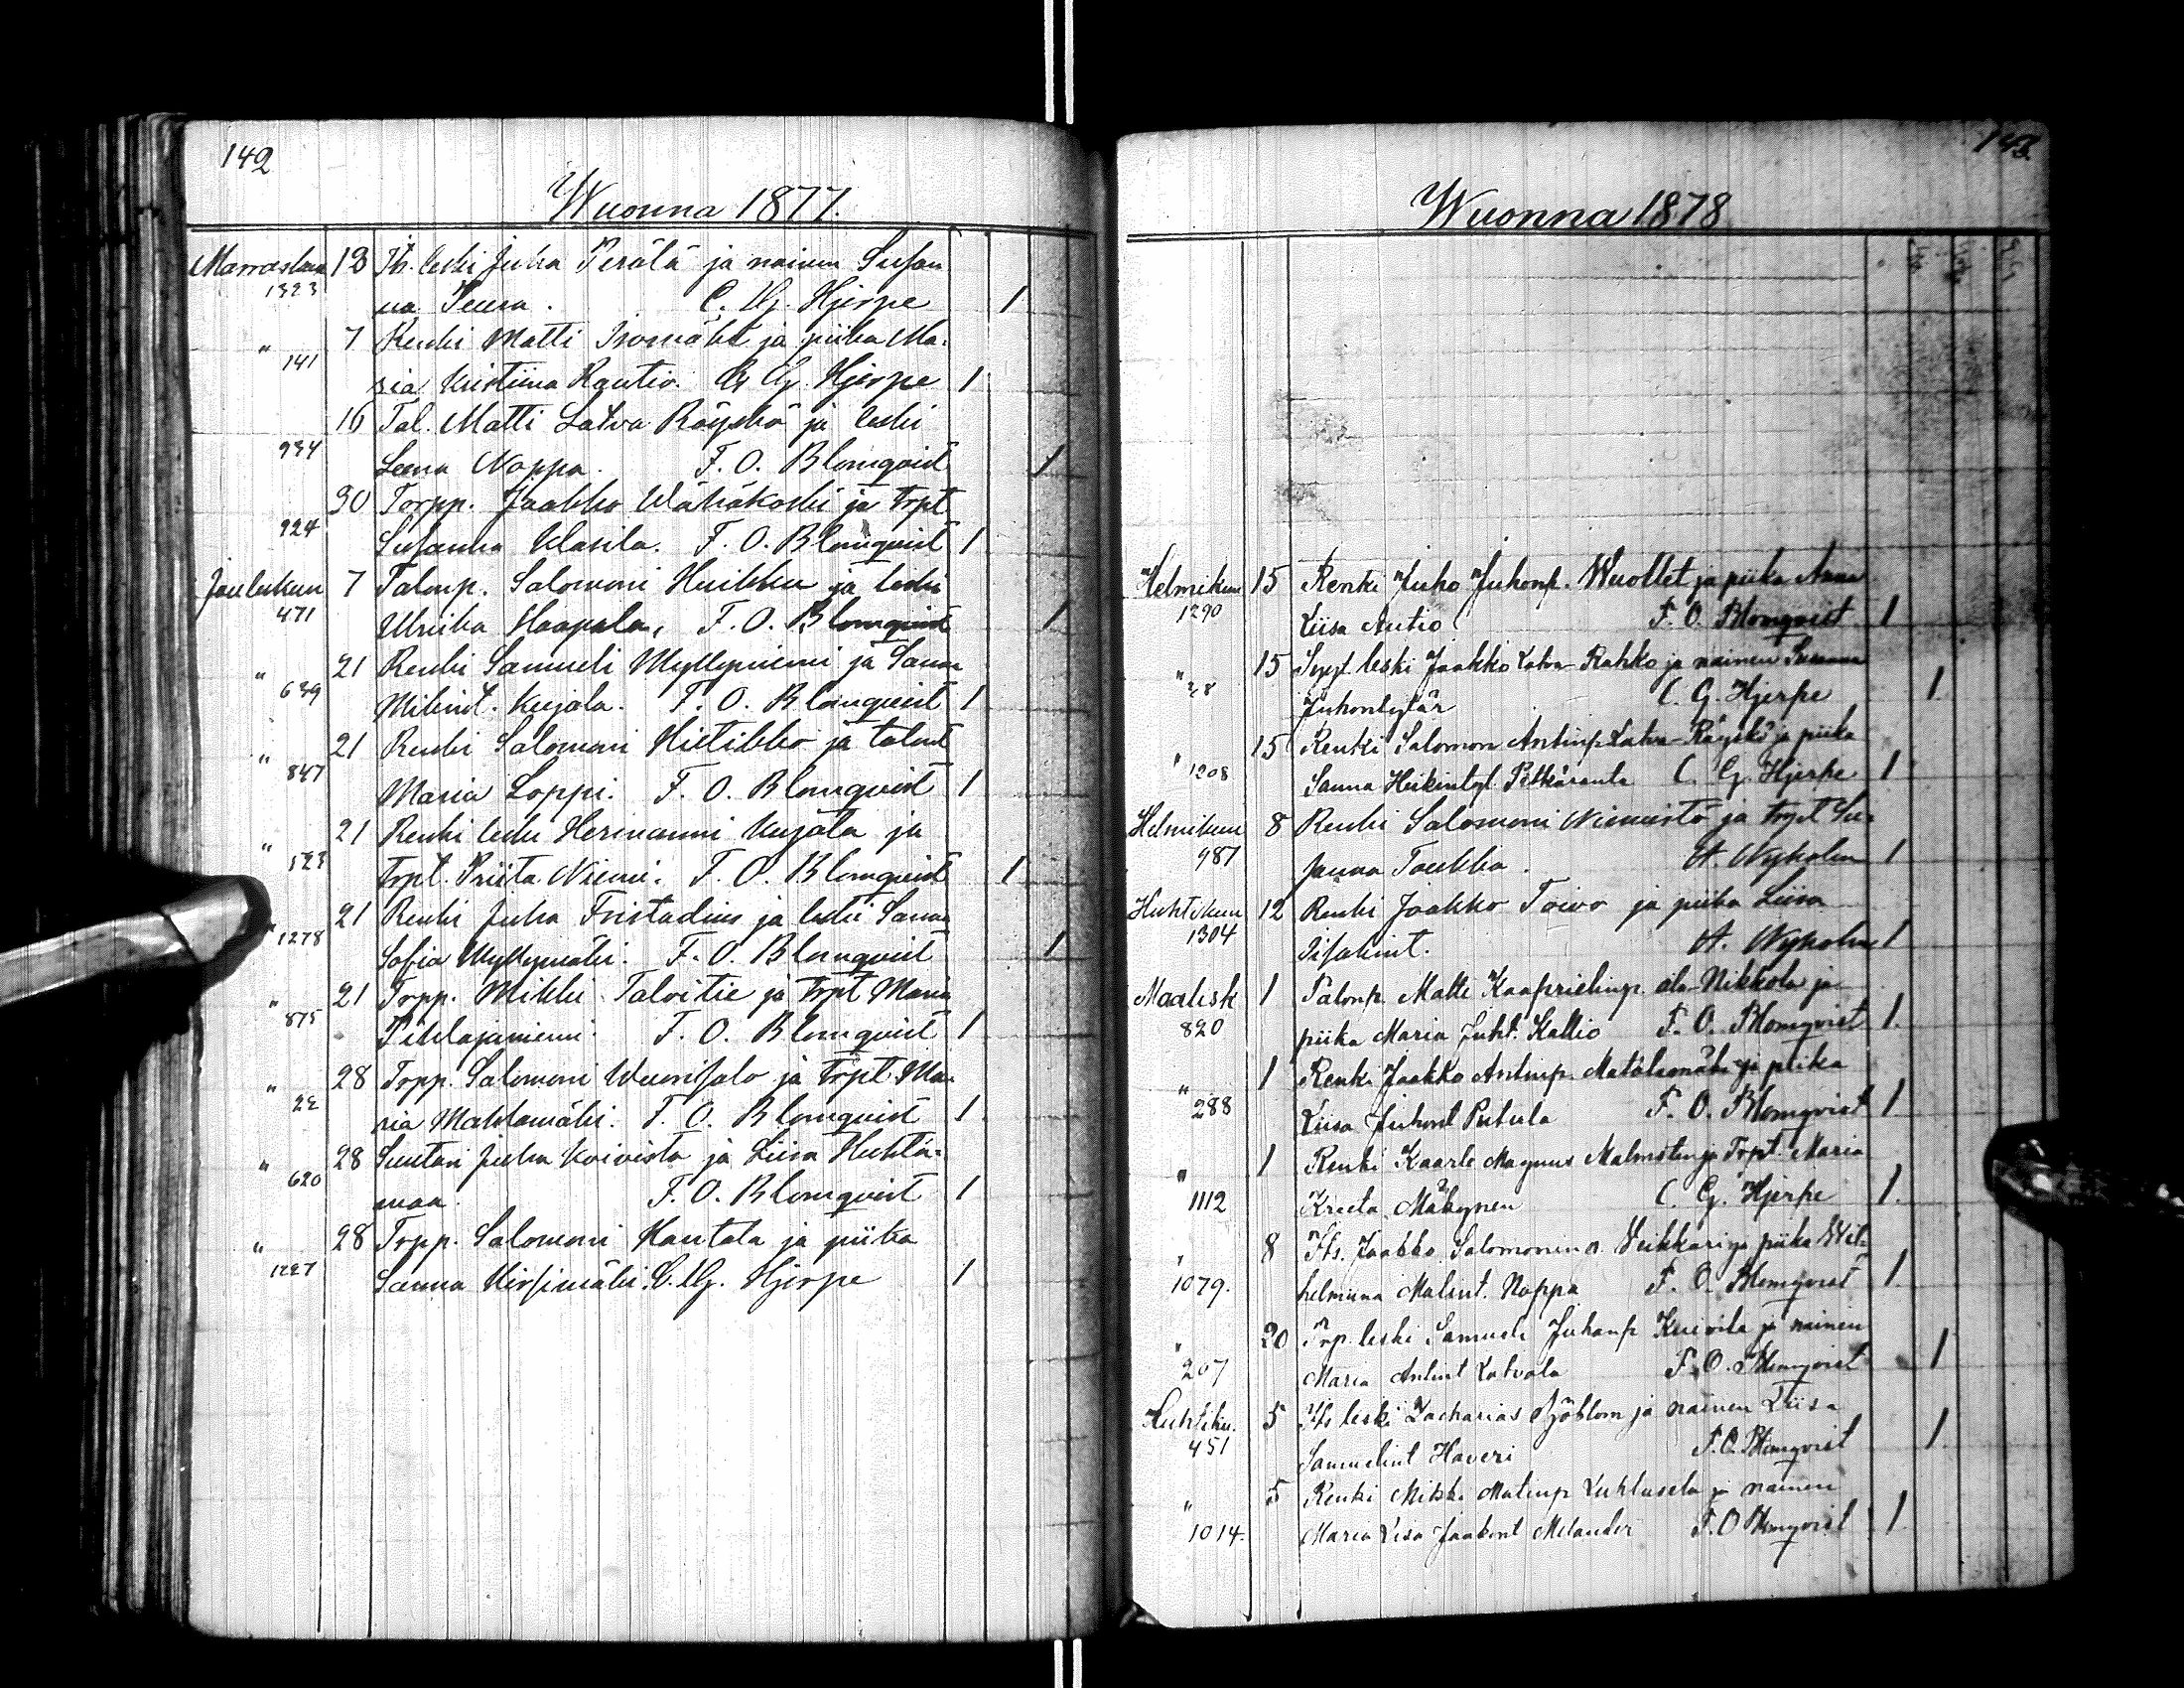 142
Wuonna 1877.
Marraskuu 13 Its. leski Juha Perälä ja nainen Susan
1323 na Teura. C. G. Hjerpe 1
" 7 Renki Matti Isomäki ja piika Ma-
141 ria Kristiina Rautio. C. G. Hjerpe 1
16 Tal. Matti Latva Röyskö ja leski
934 Leena Noppa. F. O. Blomqvist 1
30 Torpp. Jaakko Wähäkoski ja trpt
924 Susanna Klasila. F. O. Blomqvist 1
Joulukuu 7 Talonp. Salomoni Huikku ja leski
471 Ulriika Haapala, F. O. Blomqvist 1
" 21 Renki Samueli Myllyniemi ja Sanna
639 Mikint. Kujala. F. O. Blomqvist 1
" 21 Renki Salomoni Hietikko ja talont
847 Maria Loppi. F. O. Blomqvist 1
" 21 Renki leski Hermanni Kujala ja
523 trpt. Priita Niemi. F. O. Blomqvist 1
21 Renki Juha Fristadius ja leski Sanna
" 1278 Sofia Myllymäki. F. O. Blomqvist 1
" 21 Torpp. Mikki Talvitie ja trpt Maria
875 Pihlajaniemi. F. O. Blomqvist 1
" 28 Torpp. Salomoni Wuorisalo ja trpt Ma-
22 ria Mahlamäki. F. O. Blomqvist 1
" 28 Suutari Juha Koivisto ja Liisa Huhta-
620 maa. F. O. Blomqvist 1
" 28 Torpp. Salomoni Hautala ja piika
1227 Sanna Kirsimäki. C. G. Hjerpe 1
143
Wuonna 1878
Helmikuu 15 Renki Juho Juhonp. Wuollet ja piika Anna
1290 Liisa Autio F. O. Blomqvist 1
15 Sepp leski Jaakko Latva-Rahko ja nainen Susanna
" 28 Juhontytär C. G. Hjerpe 1
15 Renki Salomon Antinp Latva-Räyskö ja piika
" 1208 Sanna Heikintyt. Pitkäranta C. G. Hjerpe 1
Helmikuu 8 Renki Salomoni Niemistö ja trpt Su-
987 sanna Taukka. A. Nyholm 1
Huhtikuu 12 Renki Jaakko Toivo ja piika Liisa
1304 Iisakint. A. Nyholm 1
Maalisk 1 Talonp. Matti Kaaprielinp. ala-Nikkola ja
820 piika Maria Juht. Kallio F. O. Blomqvist 1.
" 1 Renki Jaakko Antinp. Matalamäki ja piika
288 Liisa Juhont Putula F. O. Blomqvist 1
" 1 Renki Kaarle Magnus Malmsten ja Trpt. Maria
1112 Kreeta Mäkynen C. G. Hjerpe 1.
8 Its. Jaakko Salomoninp. Veikkari ja piika Wil-
1079. helmiina Malint. Noppa F. O. Blomqvist 1
" 20 Trp. leski Samueli Juhanp Kuivila ja nainen
207 Maria Antint Latvala F. O. Blomqvist 1
Huhtiku. 5 Its leski Zacharias Sjöblom ja nainen Liisa
451 Samuelint Haveri F. O. Blomqvist 1.
" 5 Renki Mikki Matinp Luhtasela ja nainen
1014. Maria Lisa Jaakont Melander F. O Blomqvist 1.